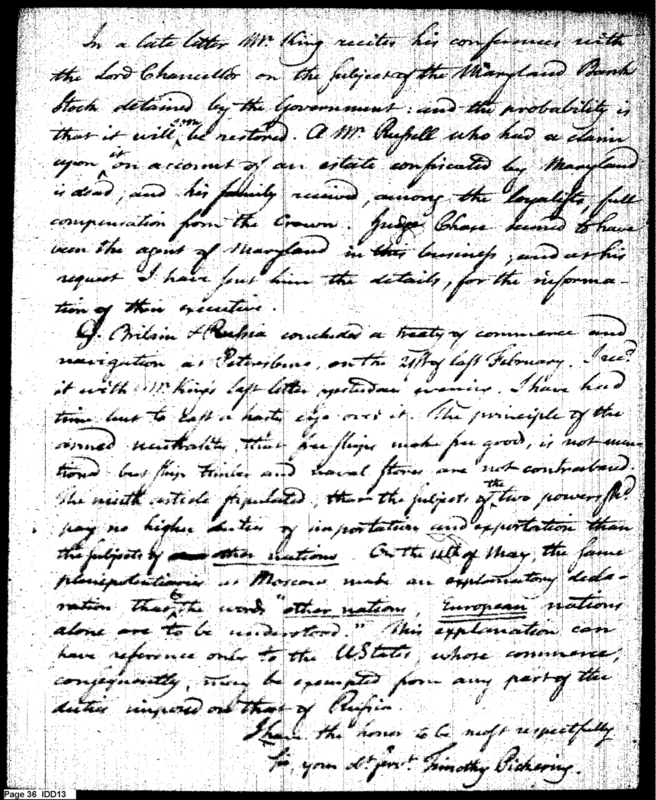 In a late letter Mr. King recites his conferences with
the Lord Chancellor on the subject of the Maryland Bank
Stock detained by the Government: and the probability is
that it will be restored. A Mr. Russell who had a claim
upon it on account of an estate confiscated by Maryland
is dead, and his family received, among the loyalists, full
compensation from the Crown. Judge Chase seemed to have
been the agent of Maryland in this business; and at his
request I have sent him the details, for the informa-
tion of their executive.
G. Britain & Russia concluded a treaty of commerce and
navigation at Petersburg, on the 21st of last February. I recd.
it with Mr. King's last letter yesterday evening. I have had
time but to cast a hasty eye over it. The principle of the
armed neutrality, that free ships make free good, is not men-
tioned but ship timber and naval stores are not contraband.
The ninth article stipulated, that the subjects of the two powers shd
pay no higher duties of importation and exportation than
the subjects of other nations. On the 11th of May, the same
plenipotentiaries at Moscow make an explanatory decla-
ration that by the words "other nations, European nations
alone are to be understood." This explanation can
have reference only to the UStates whose commerce,
consequently, may be exempted from any part of the
duties imposed on that of Russia.
I have the honor to be most respectfully
Sir, your obt. servt. Timothy Pickering.
Page 36 IDD13